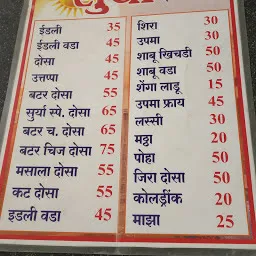 इडली 35
इडली वडा 45
दोसा 45
उत्तप्पा 45
बटर दोसा 55
सुर्या स्पे. दोसा 65
बटर च. दोसा 65
बटर चिज दोसा 75
मसाला दोसा 55
कट दोसा 55
इडली वडा 45
शिरा 30
उपमा 30
शाबू खिचडी 50
शाबू वडा 50
शेंगा लाडू 15
उपमा फ्राय 45
लस्सी 30
मठ्ठा 20
पोहा 50
जिरा दोसा 50
कोलड्रींक 20
माझा 25